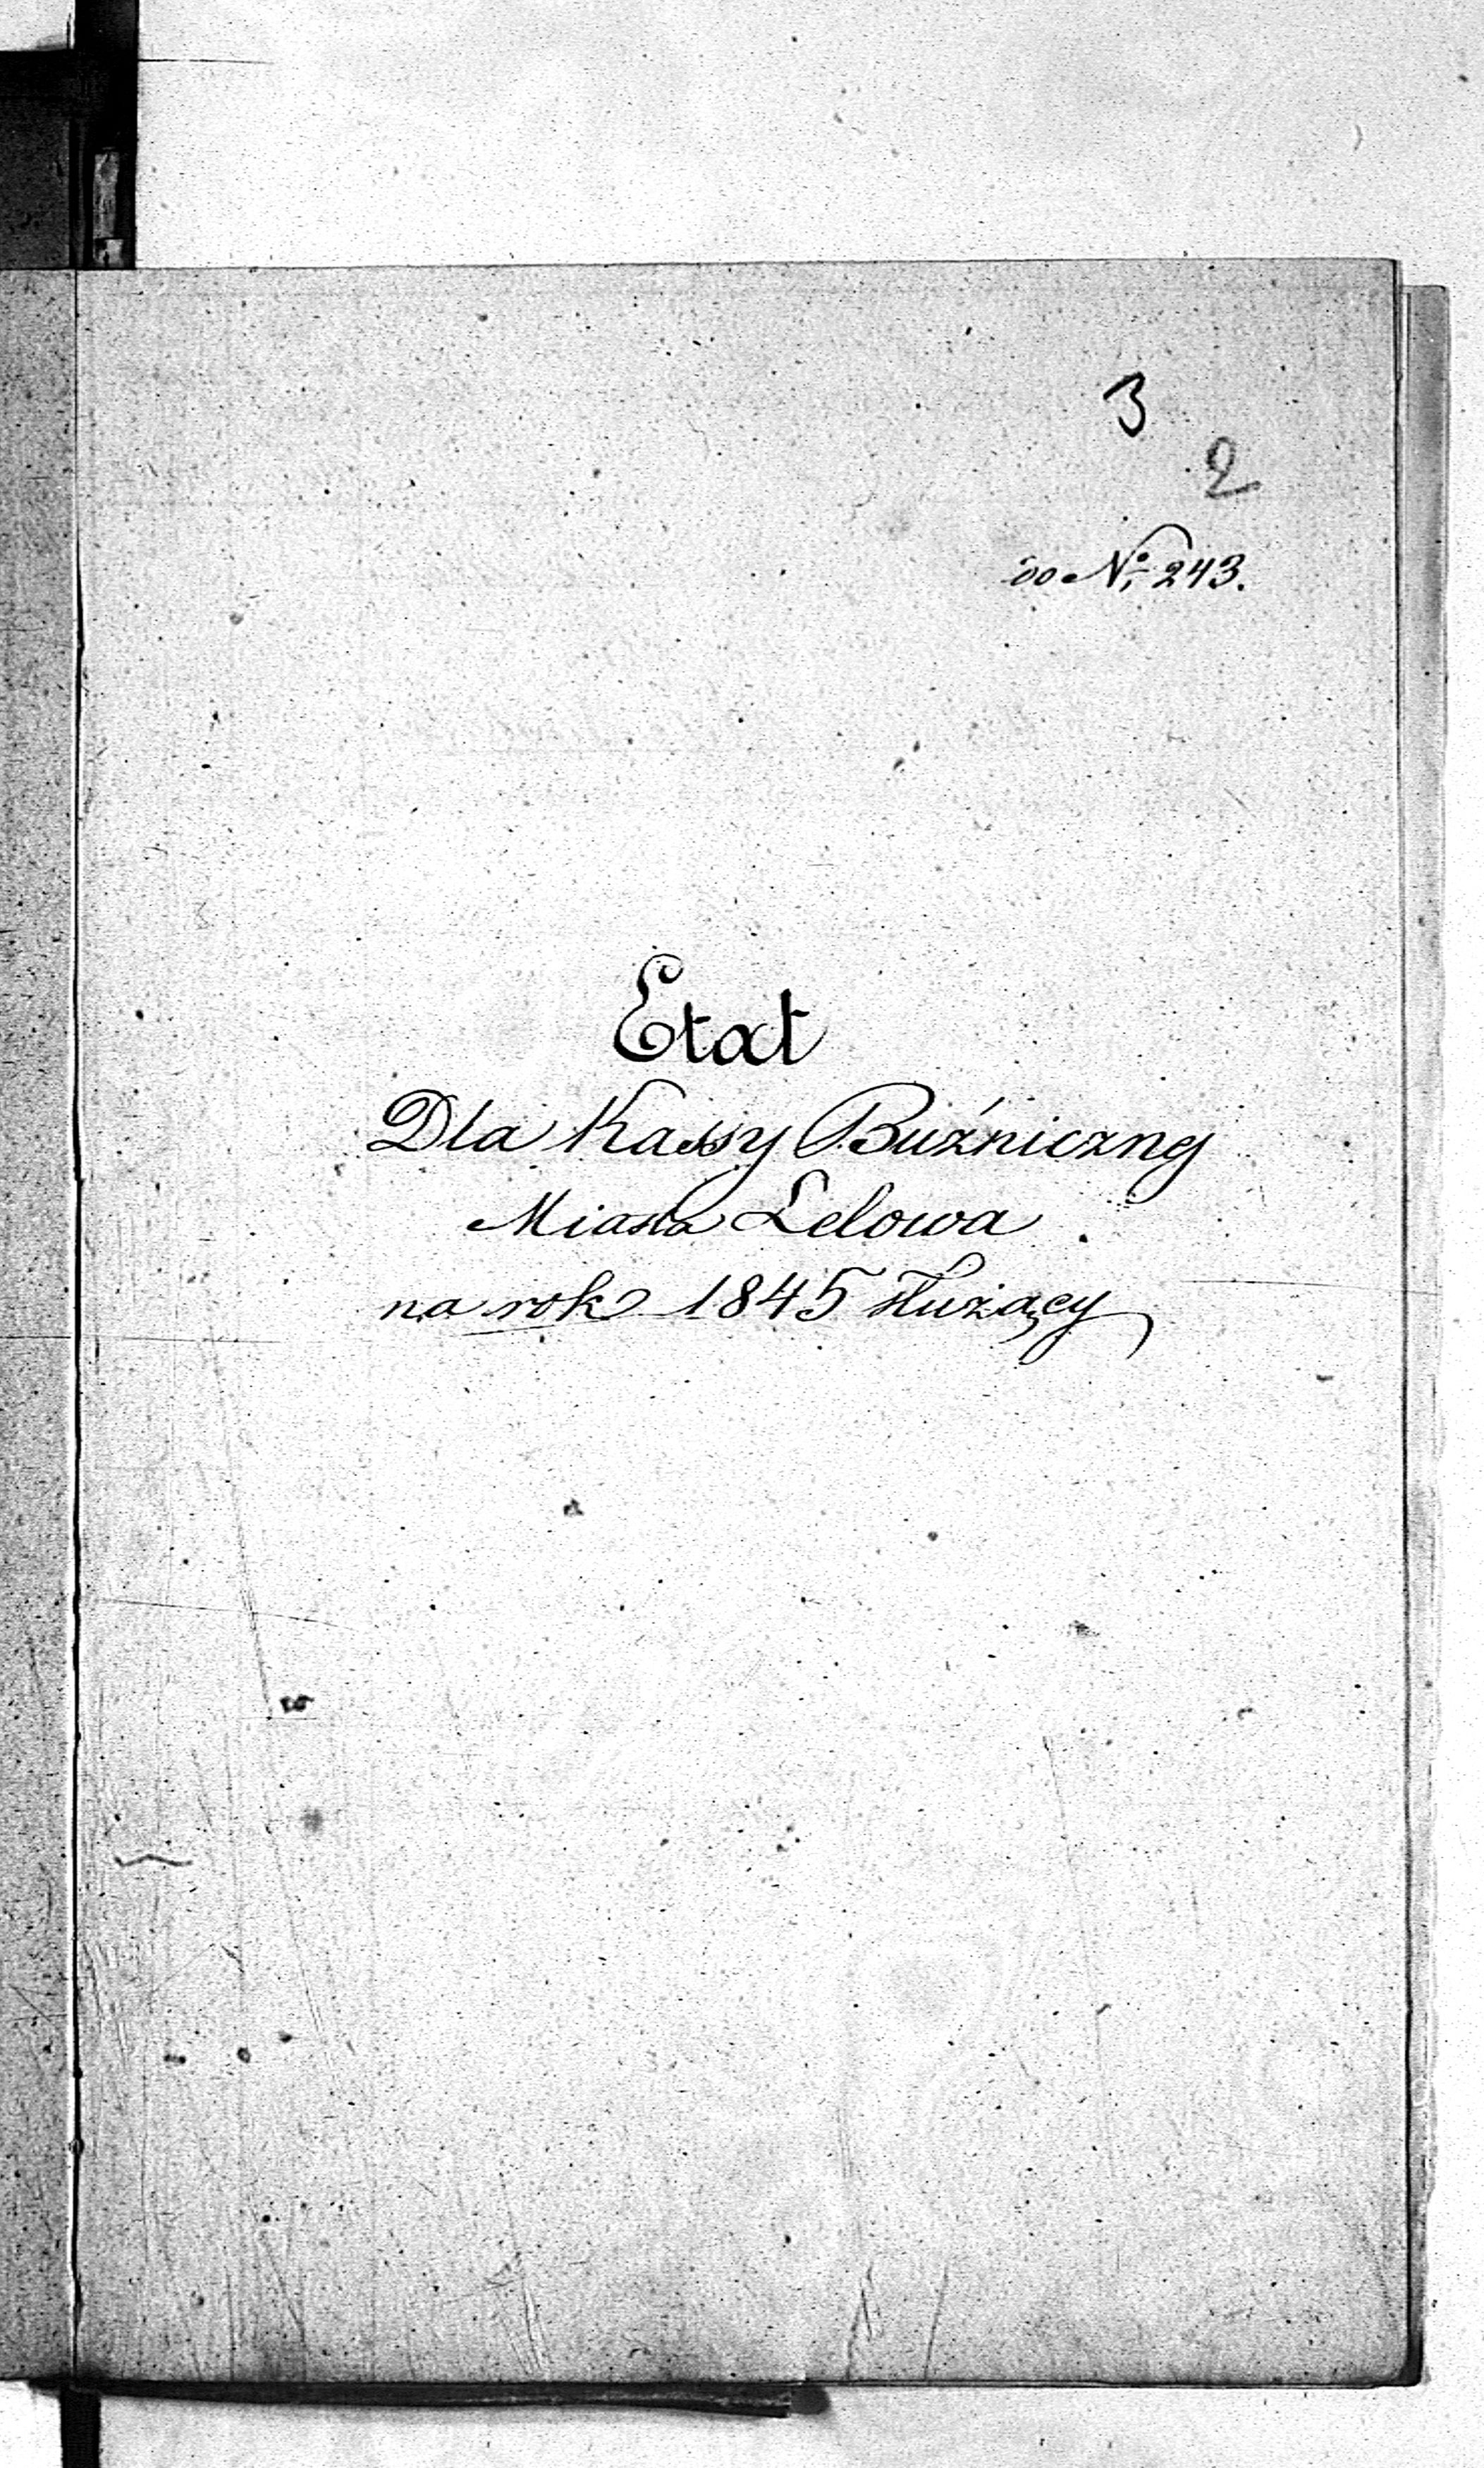 3
2
do No 243.
Etat
Dla Kassy Bużniczney
Miasta Lelowa
na rok 1845 służący